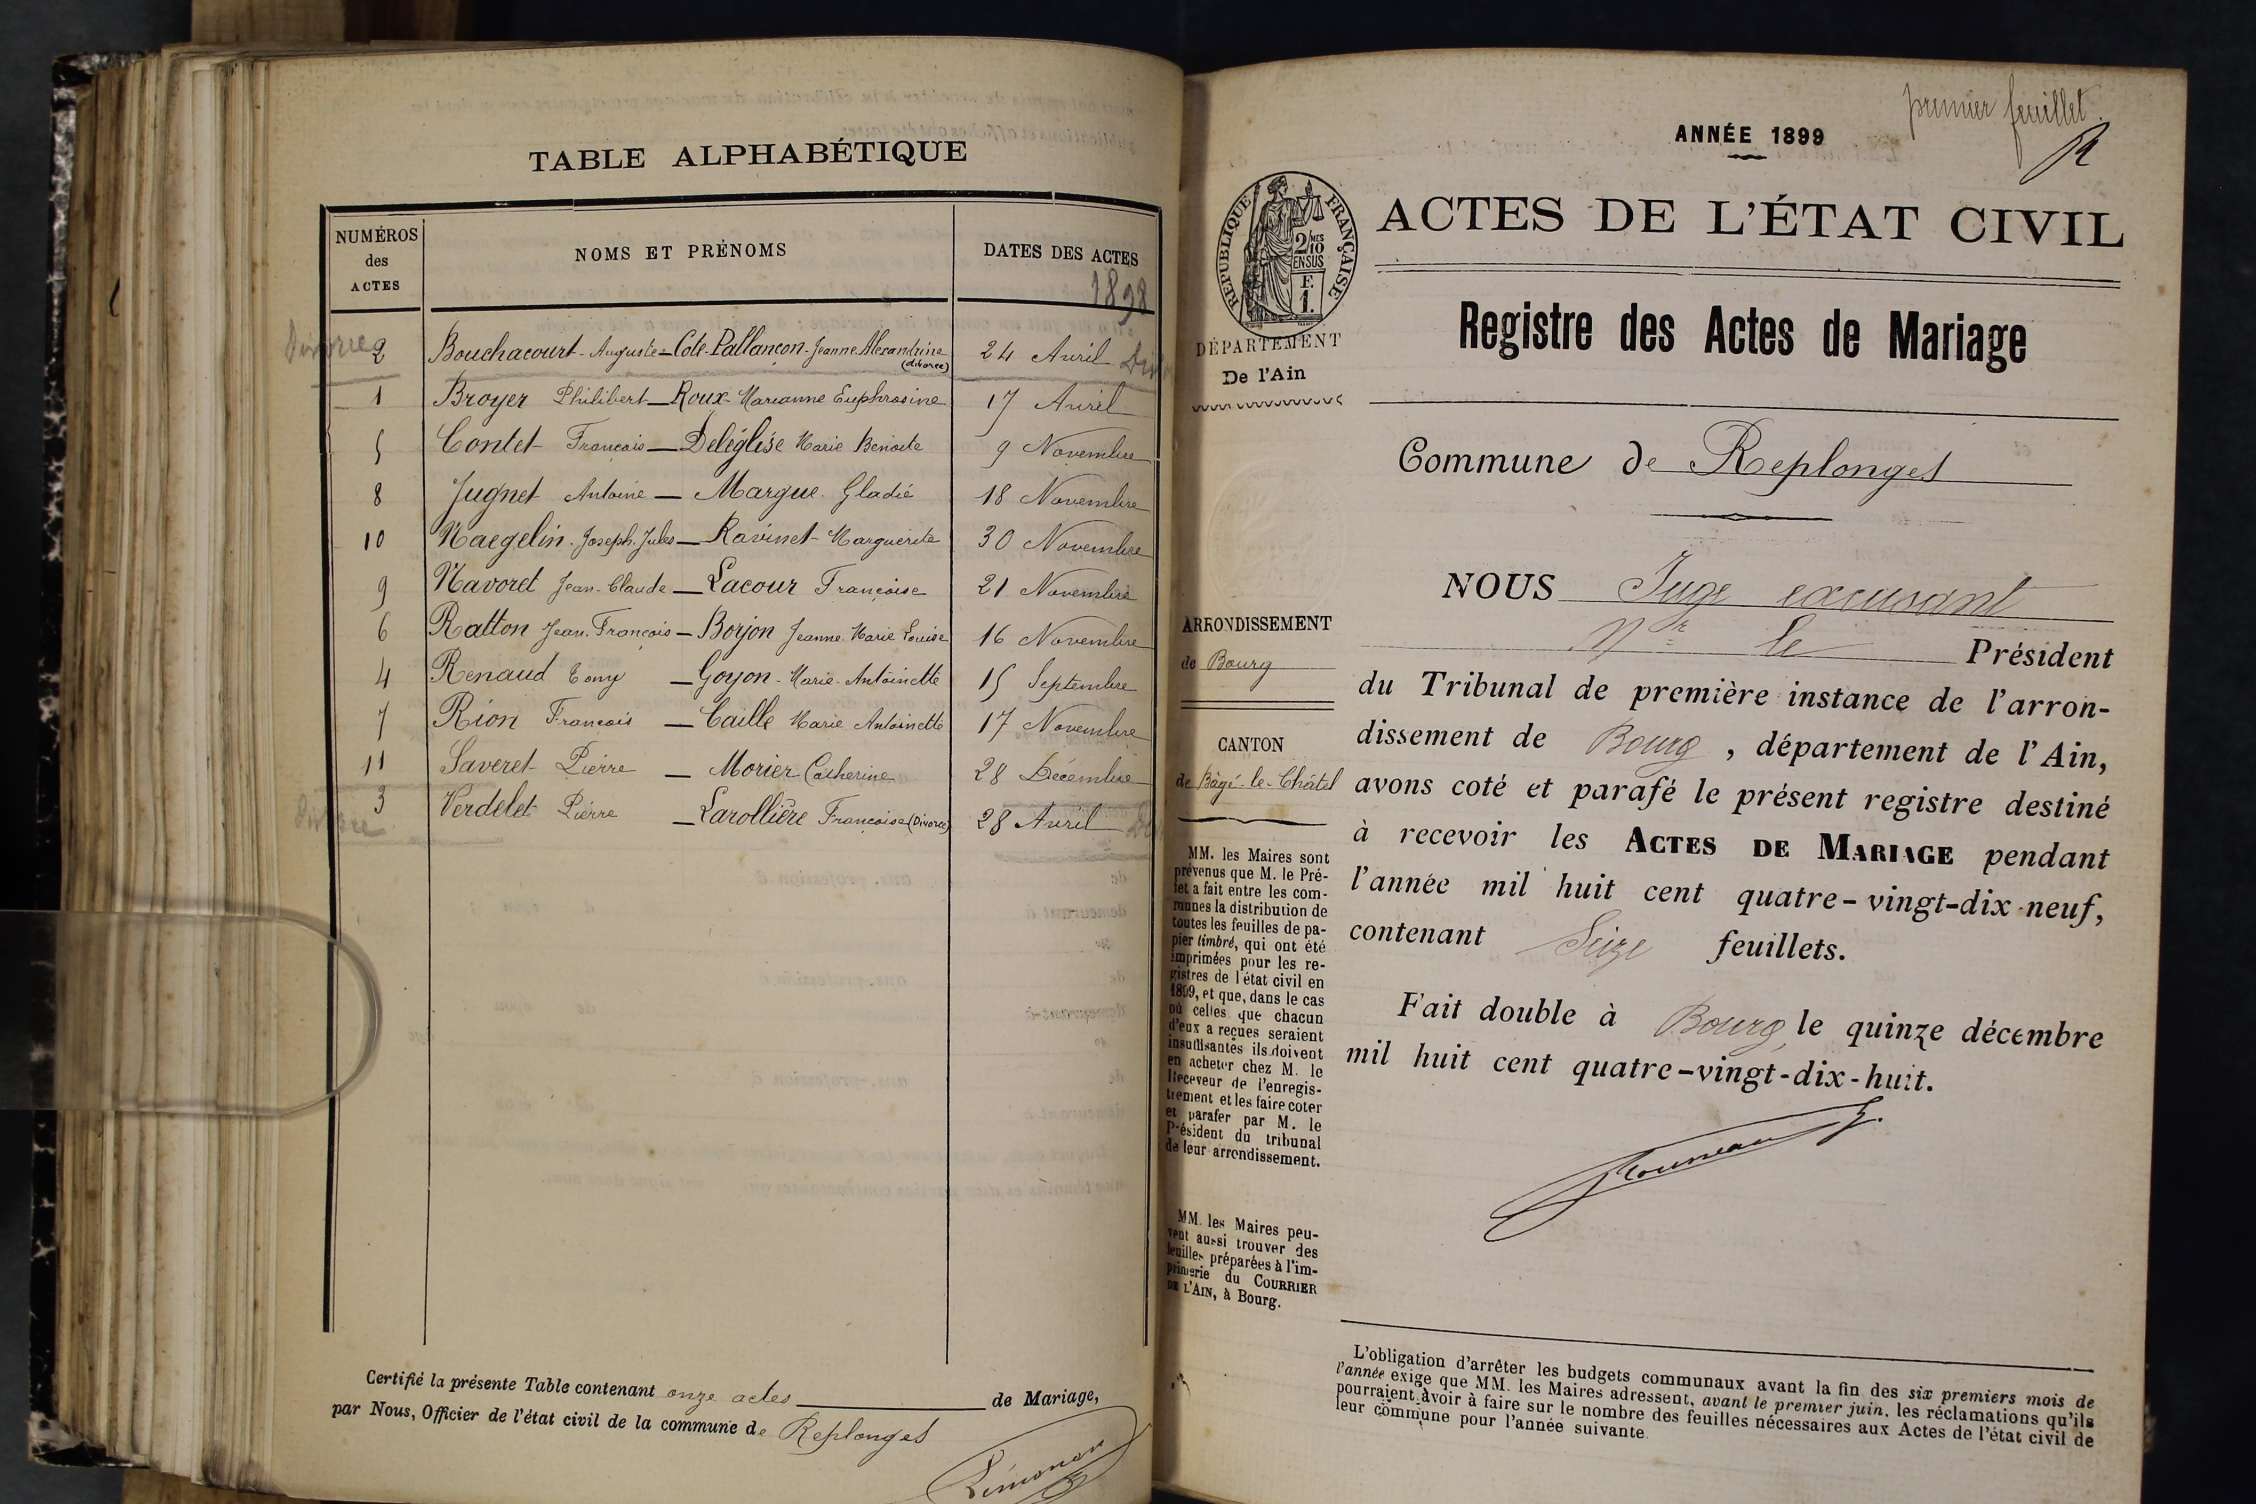 TABLE ALPHABÉTIQUE
NUMÉROS des ACTES
NOMS ET PRÉNOMS
DATES DES ACTES
1898
Divorce 2 Bouchacourt Auguste — Cote-Pallançon Jeanne Alexandrine (divorce) 24 Avril
1 Broyer Philibert — Roux Marianne Euphrosine 17 Avril
5 Contet François — Deléglise Marie Benoite 9 Novembre
8 Jugnet Antoine — Margue Gladie 18 Novembre
10 Naegelin Joseph Jules — Ravinet Marguerite 30 Novembre
9 Navoret Jean-Claude — Lacour Françoise 21 Novembre
6 Ratton Jean François — Borjon Jeanne Marie Louise 16 Novembre
4 Renaud Tony — Goyon Marie-Antoinette 15 Septembre
7 Rion François — Caille Marie Antoinette 17 Novembre
11 Saveret Pierre — Morier Catherine 28 Décembre
Divorce 3 Verdelet Pierre — Larollière Françoise (Divorce) 28 Avril
Certifié la présente Table contenant onze actes de Mariage,
par Nous, Officier de l'état civil de la commune de Replonges
premier feuillet
ANNÉE 1899
RÉPUBLIQUE FRANÇAISE
2/10 MES
EN SUS
F
1.
DÉPARTEMENT
De l'Ain
ACTES DE L'ÉTAT CIVIL
Registre des Actes de Mariage
Commune de Replonges
ARRONDISSEMENT
de Bourg
CANTON
de Bâgé-le-Châtel
MM. les Maires sont
prévenus que M. le Pré-
fet a fait entre les com-
munes la distribution de
toutes les feuilles de pa-
pier timbré, qui ont été
imprimées pour les re-
gistres de l'état civil en
1899, et que, dans le cas
où celles que chacun
d'eux a reçues seraient
insuffisantes ils doivent
en acheter chez M. le
Receveur de l'enregis-
trement et les faire coter
et parafer par M. le
Président du tribunal
de leur arrondissement.
MM. les Maires peu-
vent aussi trouver des
feuilles préparées à l'im-
primerie du COURRIER
DE L'AIN, à Bourg.
NOUS Juge excusant
Mr le Président
du Tribunal de première instance de l'arron-
dissement de Bourg, département de l'Ain,
avons coté et parafé le présent registre destiné
à recevoir les ACTES DE MARIAGE pendant
l'année mil huit cent quatre-vingt-dix-neuf,
contenant Seize feuillets.
Fait double à Bourg, le quinze décembre
mil huit cent quatre-vingt-dix-huit.
L'obligation d'arrêter les budgets communaux avant la fin des six premiers mois de
l'année exige que MM. les Maires adressent, avant le premier juin, les réclamations qu'ils
pourraient avoir à faire sur le nombre des feuilles nécessaires aux Actes de l'état civil de
leur commune pour l'année suivante.